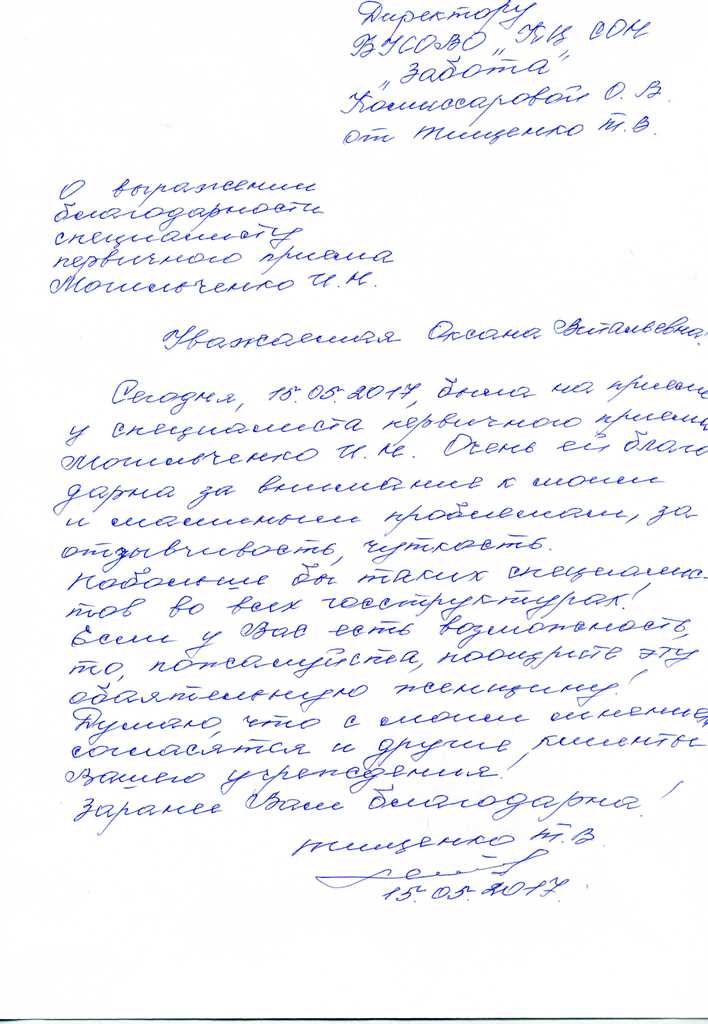 Директору
БУСОВО „КЦ СОН
„Забота"
Комиссаровой О.В.
от Тищенко Т.В.
О выражении
благодарности
специалисту
первичного приема
Могильченко И.Н.
Уважаемая Оксана Витальевна!
Сегодня, 15.05.2017, была на приеме
у специалиста первичного приема
Могильченко И.Н. Очень ей благо
дарна за внимание к моим
и маминым проблемам, за
отзывчивость, чуткость.
Побольше бы таких специалис-
тов во всех госструктурах!
Если у Вас есть возможность,
то, пожалуйста, поощрите эту
обаятельную женщину!
Думаю, что с моим мнением
согласятся и другие клиенты
Вашего учреждения!
Заранее Вам благодарна!
Тищенко Т.В.
15.05.2017.